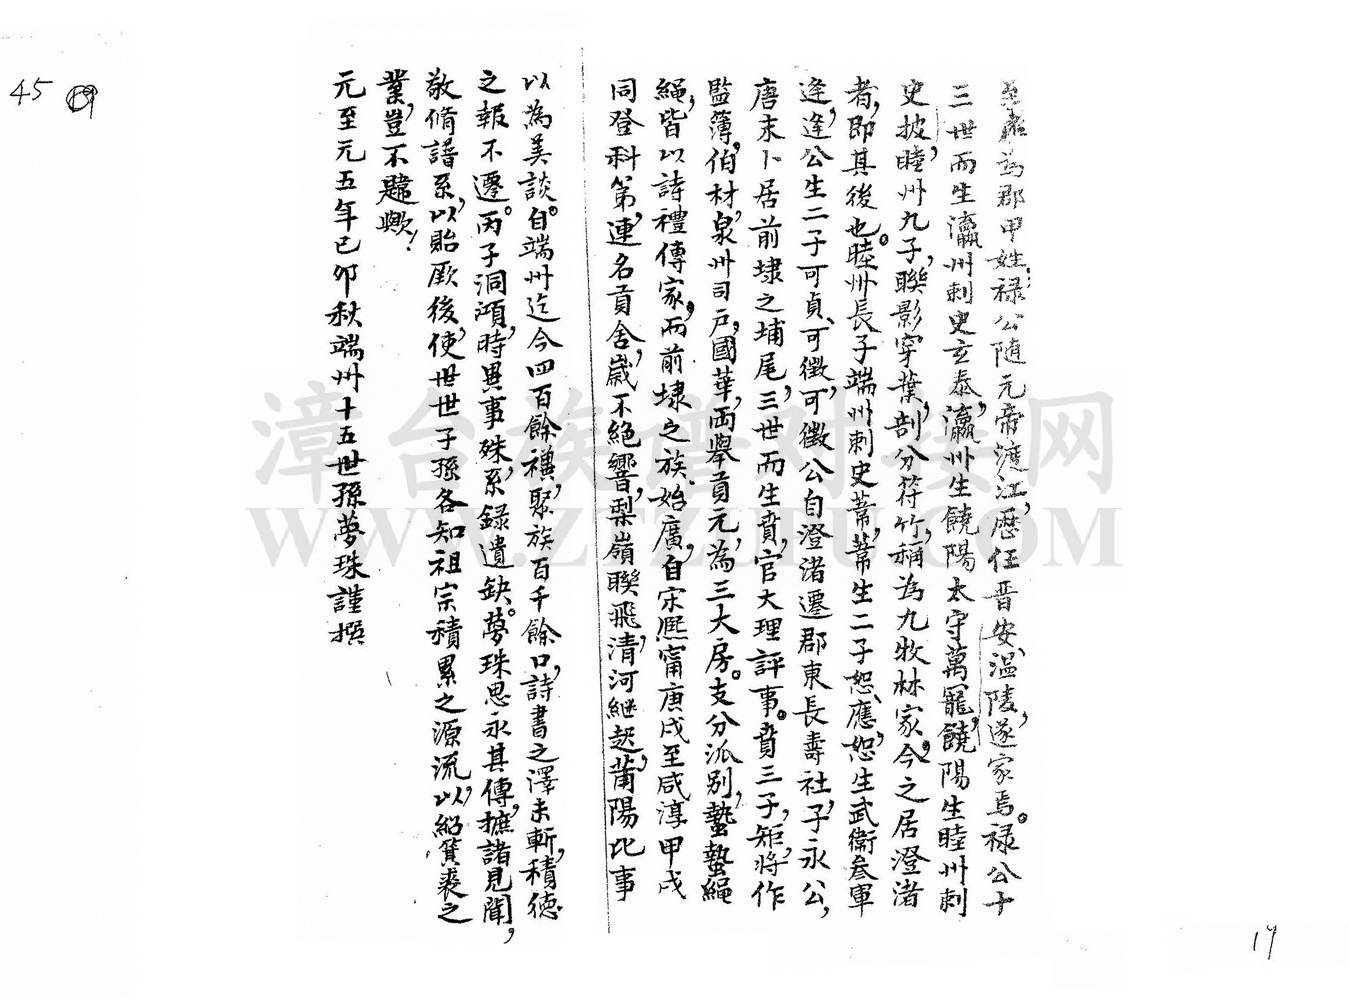 45 19
為郡甲姓,禄公随元帝渡江,歷任晋安、温陵,遂家焉。禄公十
三世而生瀛州刺史玄泰,瀛州生饒陽太守萬寵,饒陽生睦州刺
史披,睦州九子,聯影穿葉,剖分符竹,稱為九牧林家。今之居澄渚
者,即其後也。睦州長子端州刺史葦,葦生二子恕、應,恕生武衛叁軍
逢,逢公生二子可貞、可徵,可徵公自澄渚遷郡東長壽社,子永公,
唐末卜居前埭之埔尾,三世而生賁,官大理評事。賁三子,矩,將作
監簿,伯材,泉州司戶,國華,兩舉貢元,為三大房。支分派別,蟄蟄繩
繩,皆以詩禮傳家,而前埭之族始廣,自宋熙甯庚戌至咸淳甲戌
同登科第,連名貢舍,歲不絕響,梨嶺聯飛,清河繼起,莆陽比事
以為美談。自端州迄今四百餘禩,聚族百千餘口,詩書之澤未斬,積德
之報不遷。丙子洞澒,時異事殊,系録遺缺。夢珠思永其傳,摭諸見聞,
敬脩譜系,以貽厥後,使世世子孫各知祖宗積累之源流,以紹箕裘之
業,豈不韙歟!
元至元五年已卯秋端州十五世孫夢珠謹撰
19
漳台族谱对接网
WWW.ZTZUPU.COM